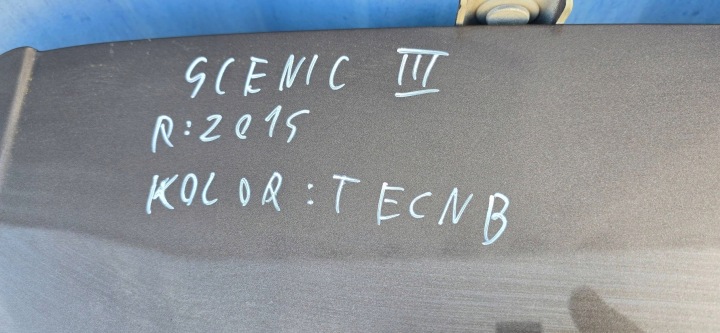 SCENIC III
R:2015
KOLOR:TECNB